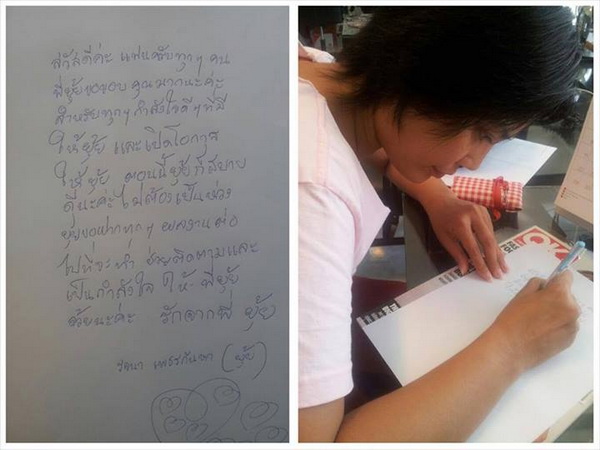 สวัสดีค่ะ แฟนคลับทุกๆ คน
พี่ยุ้ยขอขอบคุณมากนะคะ
สำหรับทุกๆ กำลังใจดีๆ ที่มี
ให้ยุ้ย และเปิดโอกาส
ให้ ยุ้ย ตอนนี้ยุ้ยก็สบาย
ดีนะคะ ไม่ต้องเป็นห่วง
ยุ้ยขอฝากทุกๆ ผลงานต่อ
ไปที่จะทำ ช่วยติดตามและ
เป็นกำลังใจ ให้ พี่ยุ้ย
ด้วยนะคะ รักจากพี่ ยุ้ย
(ยุ้ย)